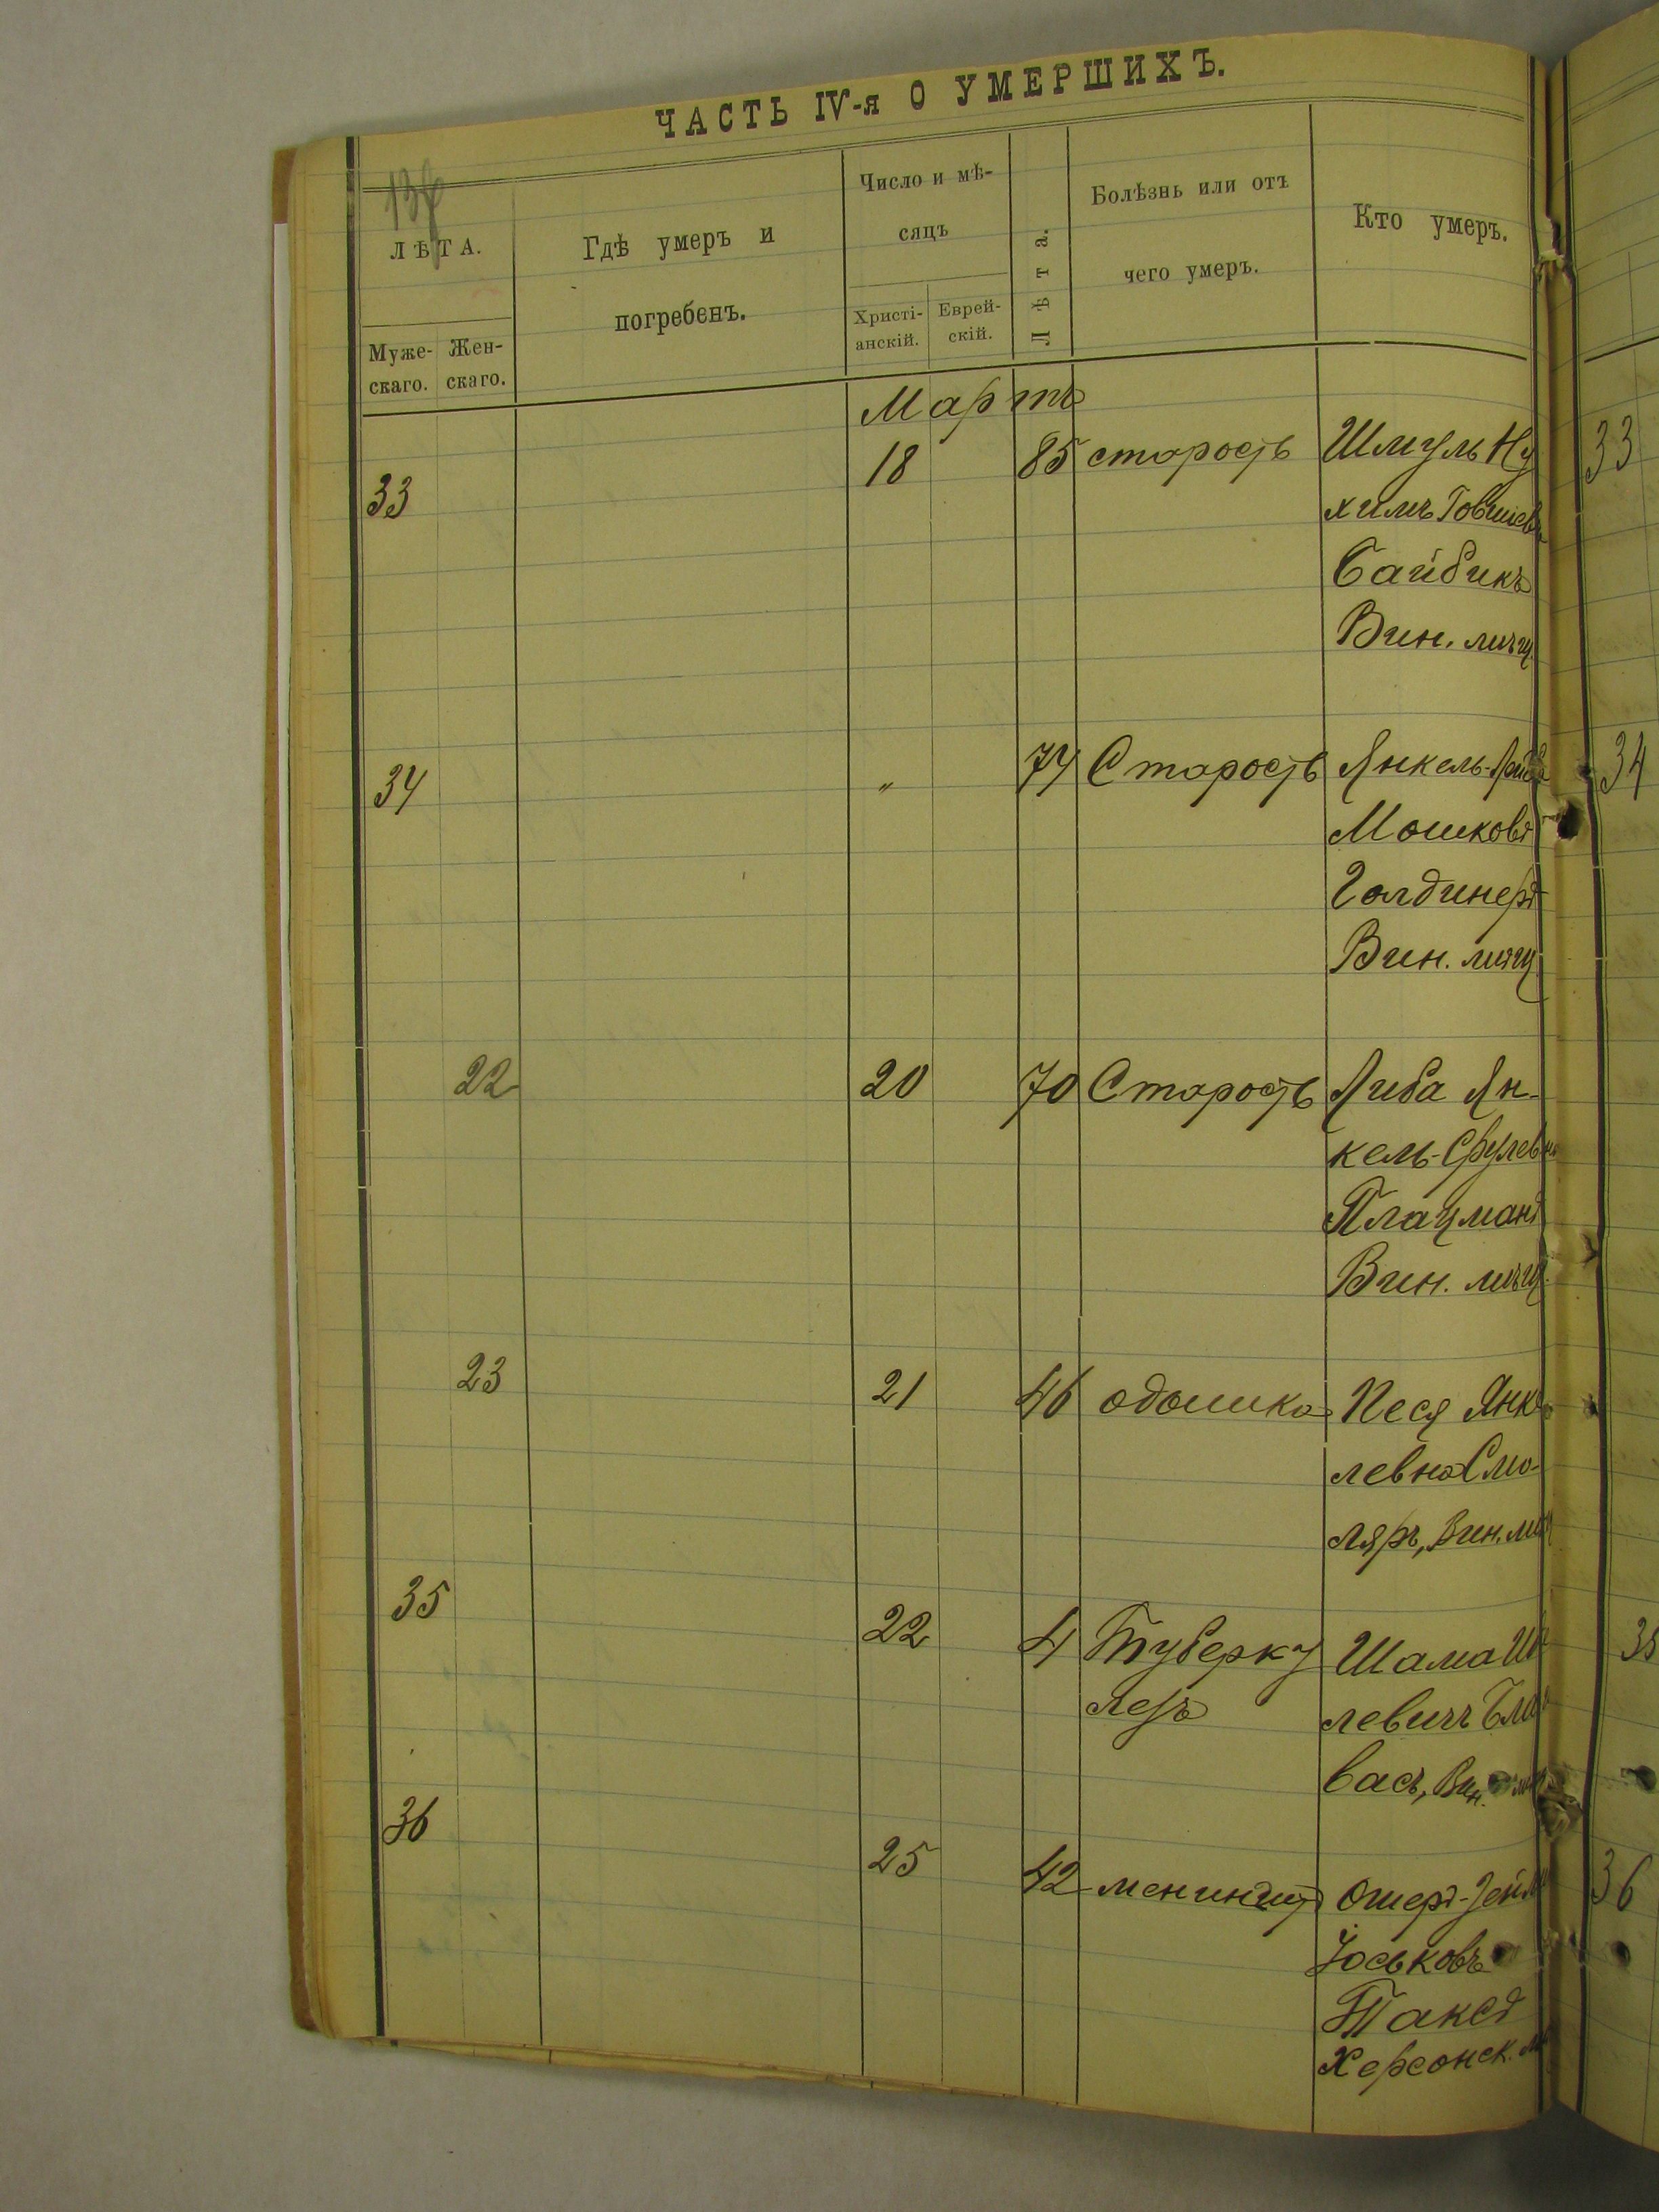 ЧАСТЬ IV-я О УМЕРШИХЪ.
ЛѢТА.
Муже-
скаго.
Жен-
скаго.
Гдѣ умеръ и
погребенъ.
Число и мѣ-
сяцъ
Христі-
анскій.
Еврей-
скій.
Лѣта.
Болѣзнь или отъ
чего умеръ.
Кто умеръ.
Мартъ
33 18 85 старость Шмуль Ну 33
химъ Говшіев
Сайбикъ
Вин. мѣщ.
34 " 74 Старость Янкель-Лейба 34
Мошковъ
Голдинеръ
Вин. мѣщ
22 20 70 Старость Либа Ян-
кель-Срулевна
Плацманъ
Вин. мѣщ.
23 21 46 одышка Песя Янке
левна Смо-
ляръ, Вин. мѣщ
35 22 4 Туберку Шама 35
лезъ левичъ
васъ, Вин.
36 25 42 менингитъ Ошеръ-Зейл 36
Іоськовъ
Таксъ
Херсонск. м